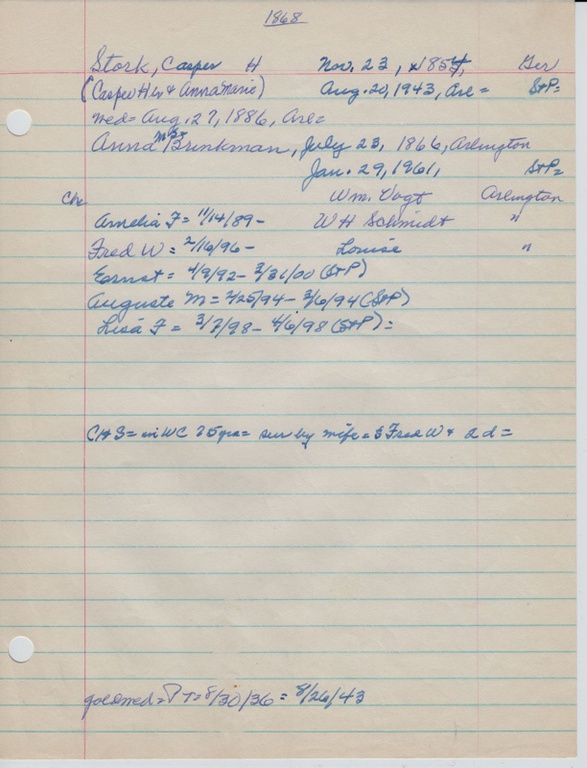 1868
Stork, Casper H Nov. 23, 1854, Ger
(Casper H Sr & Anna Marie) Aug. 20, 1943, Arl = StP=
med = Aug. 27, 1886, Arl =
Anna M S Brinkman, July 23, 1866, Arlington
Jan. 29, 1961, StP=
Chr Wm. Vogt Arlington
Amelia F = 11/14/89 - W H Schmidt "
Fred W = 2/16/96 - Louise "
Ernst = 4/9/92 - 3/31/00 (StP)
Auguste M = 2/25/94 - 3/6/94 (StP)
Lisa F = 3/7/98 - 4/6/98 (StP) =
C H S = in WC 75 yrs = sur by wife = s Fred W & 2 d =
goldmed = P T = 8/30/36 = 8/26/43